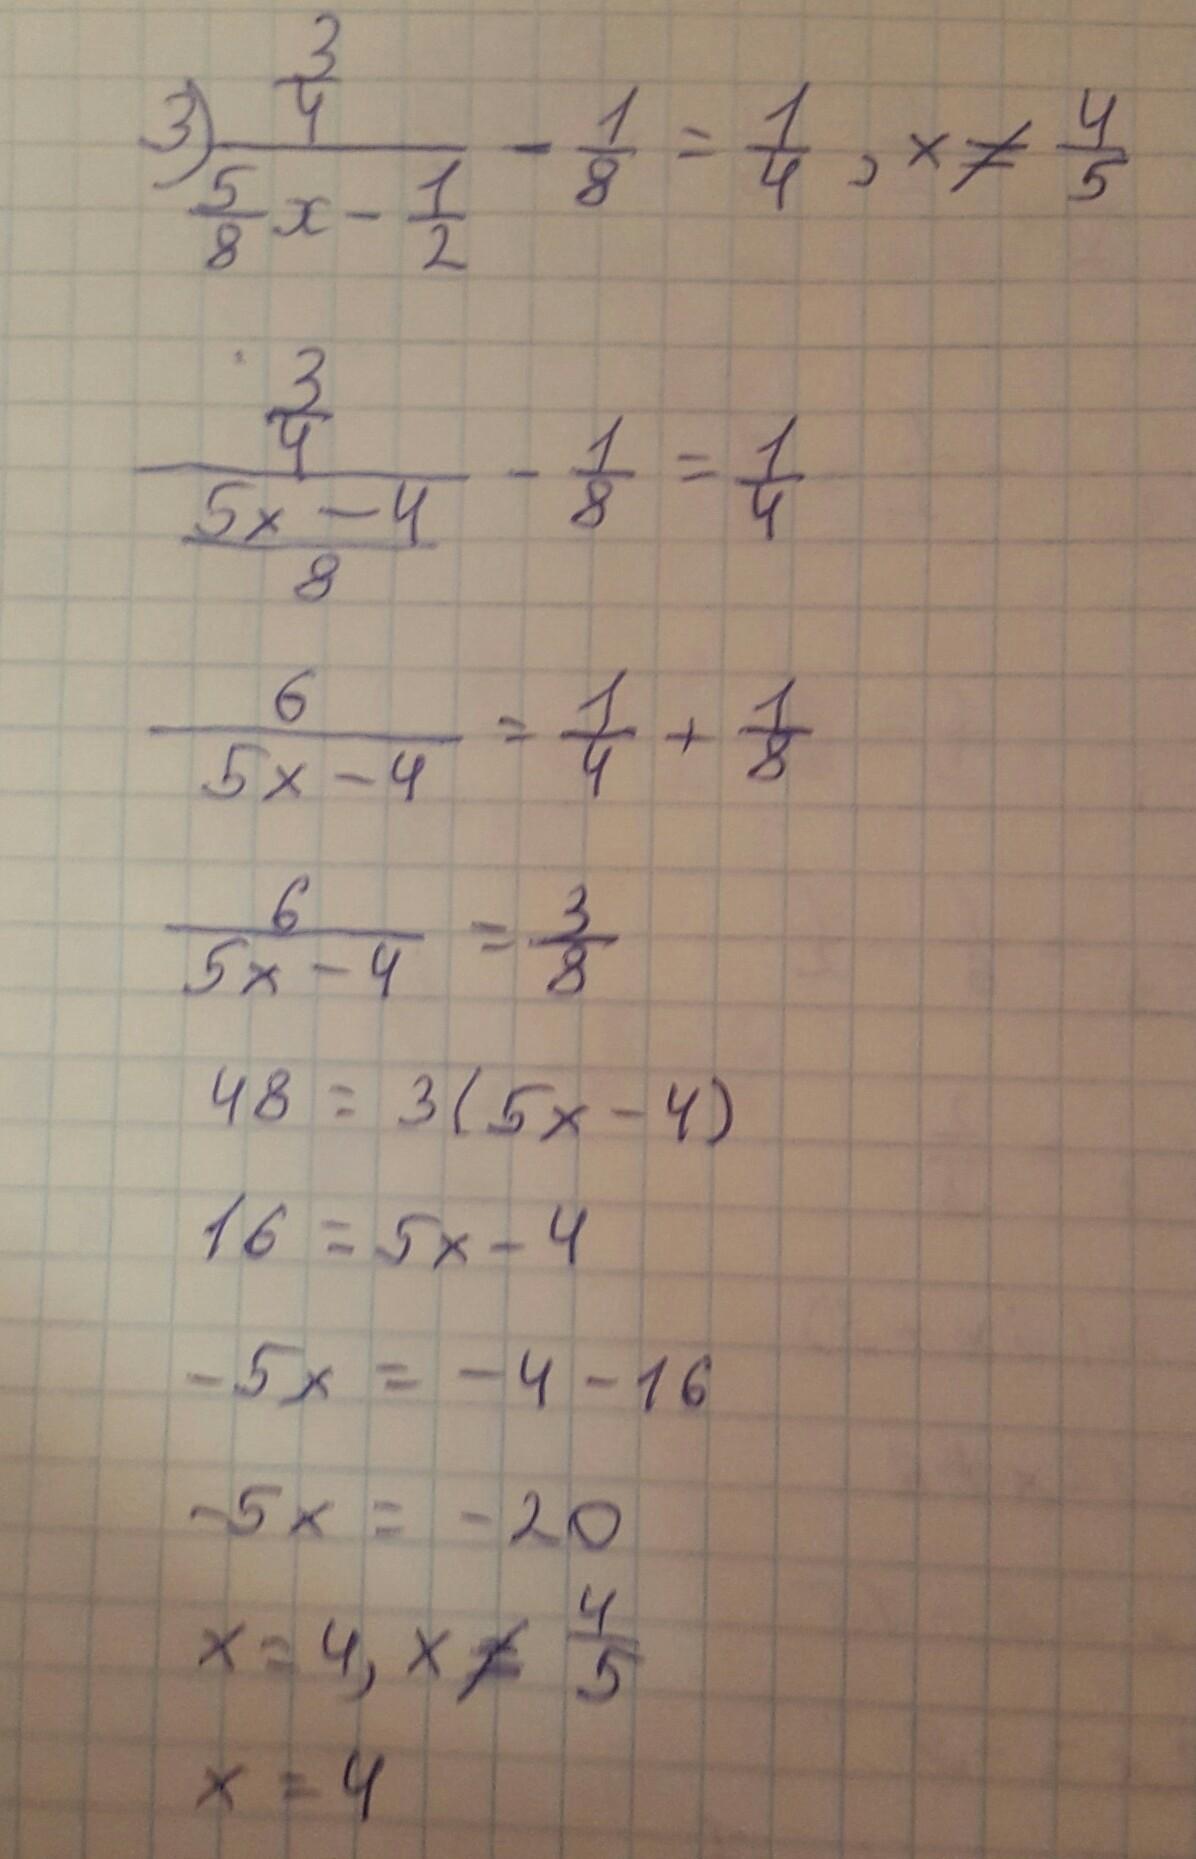 3) (3/4)/(5/8 x - 1/2) - 1/8 = 1/4, x ≠ 4/5
(3/4)/((5x - 4)/8) - 1/8 = 1/4
6/(5x - 4) = 1/4 + 1/8
6/(5x - 4) = 3/8
48 = 3(5x - 4)
16 = 5x - 4
-5x = -4 - 16
-5x = -20
x = 4, x ≠ 4/5
x = 4